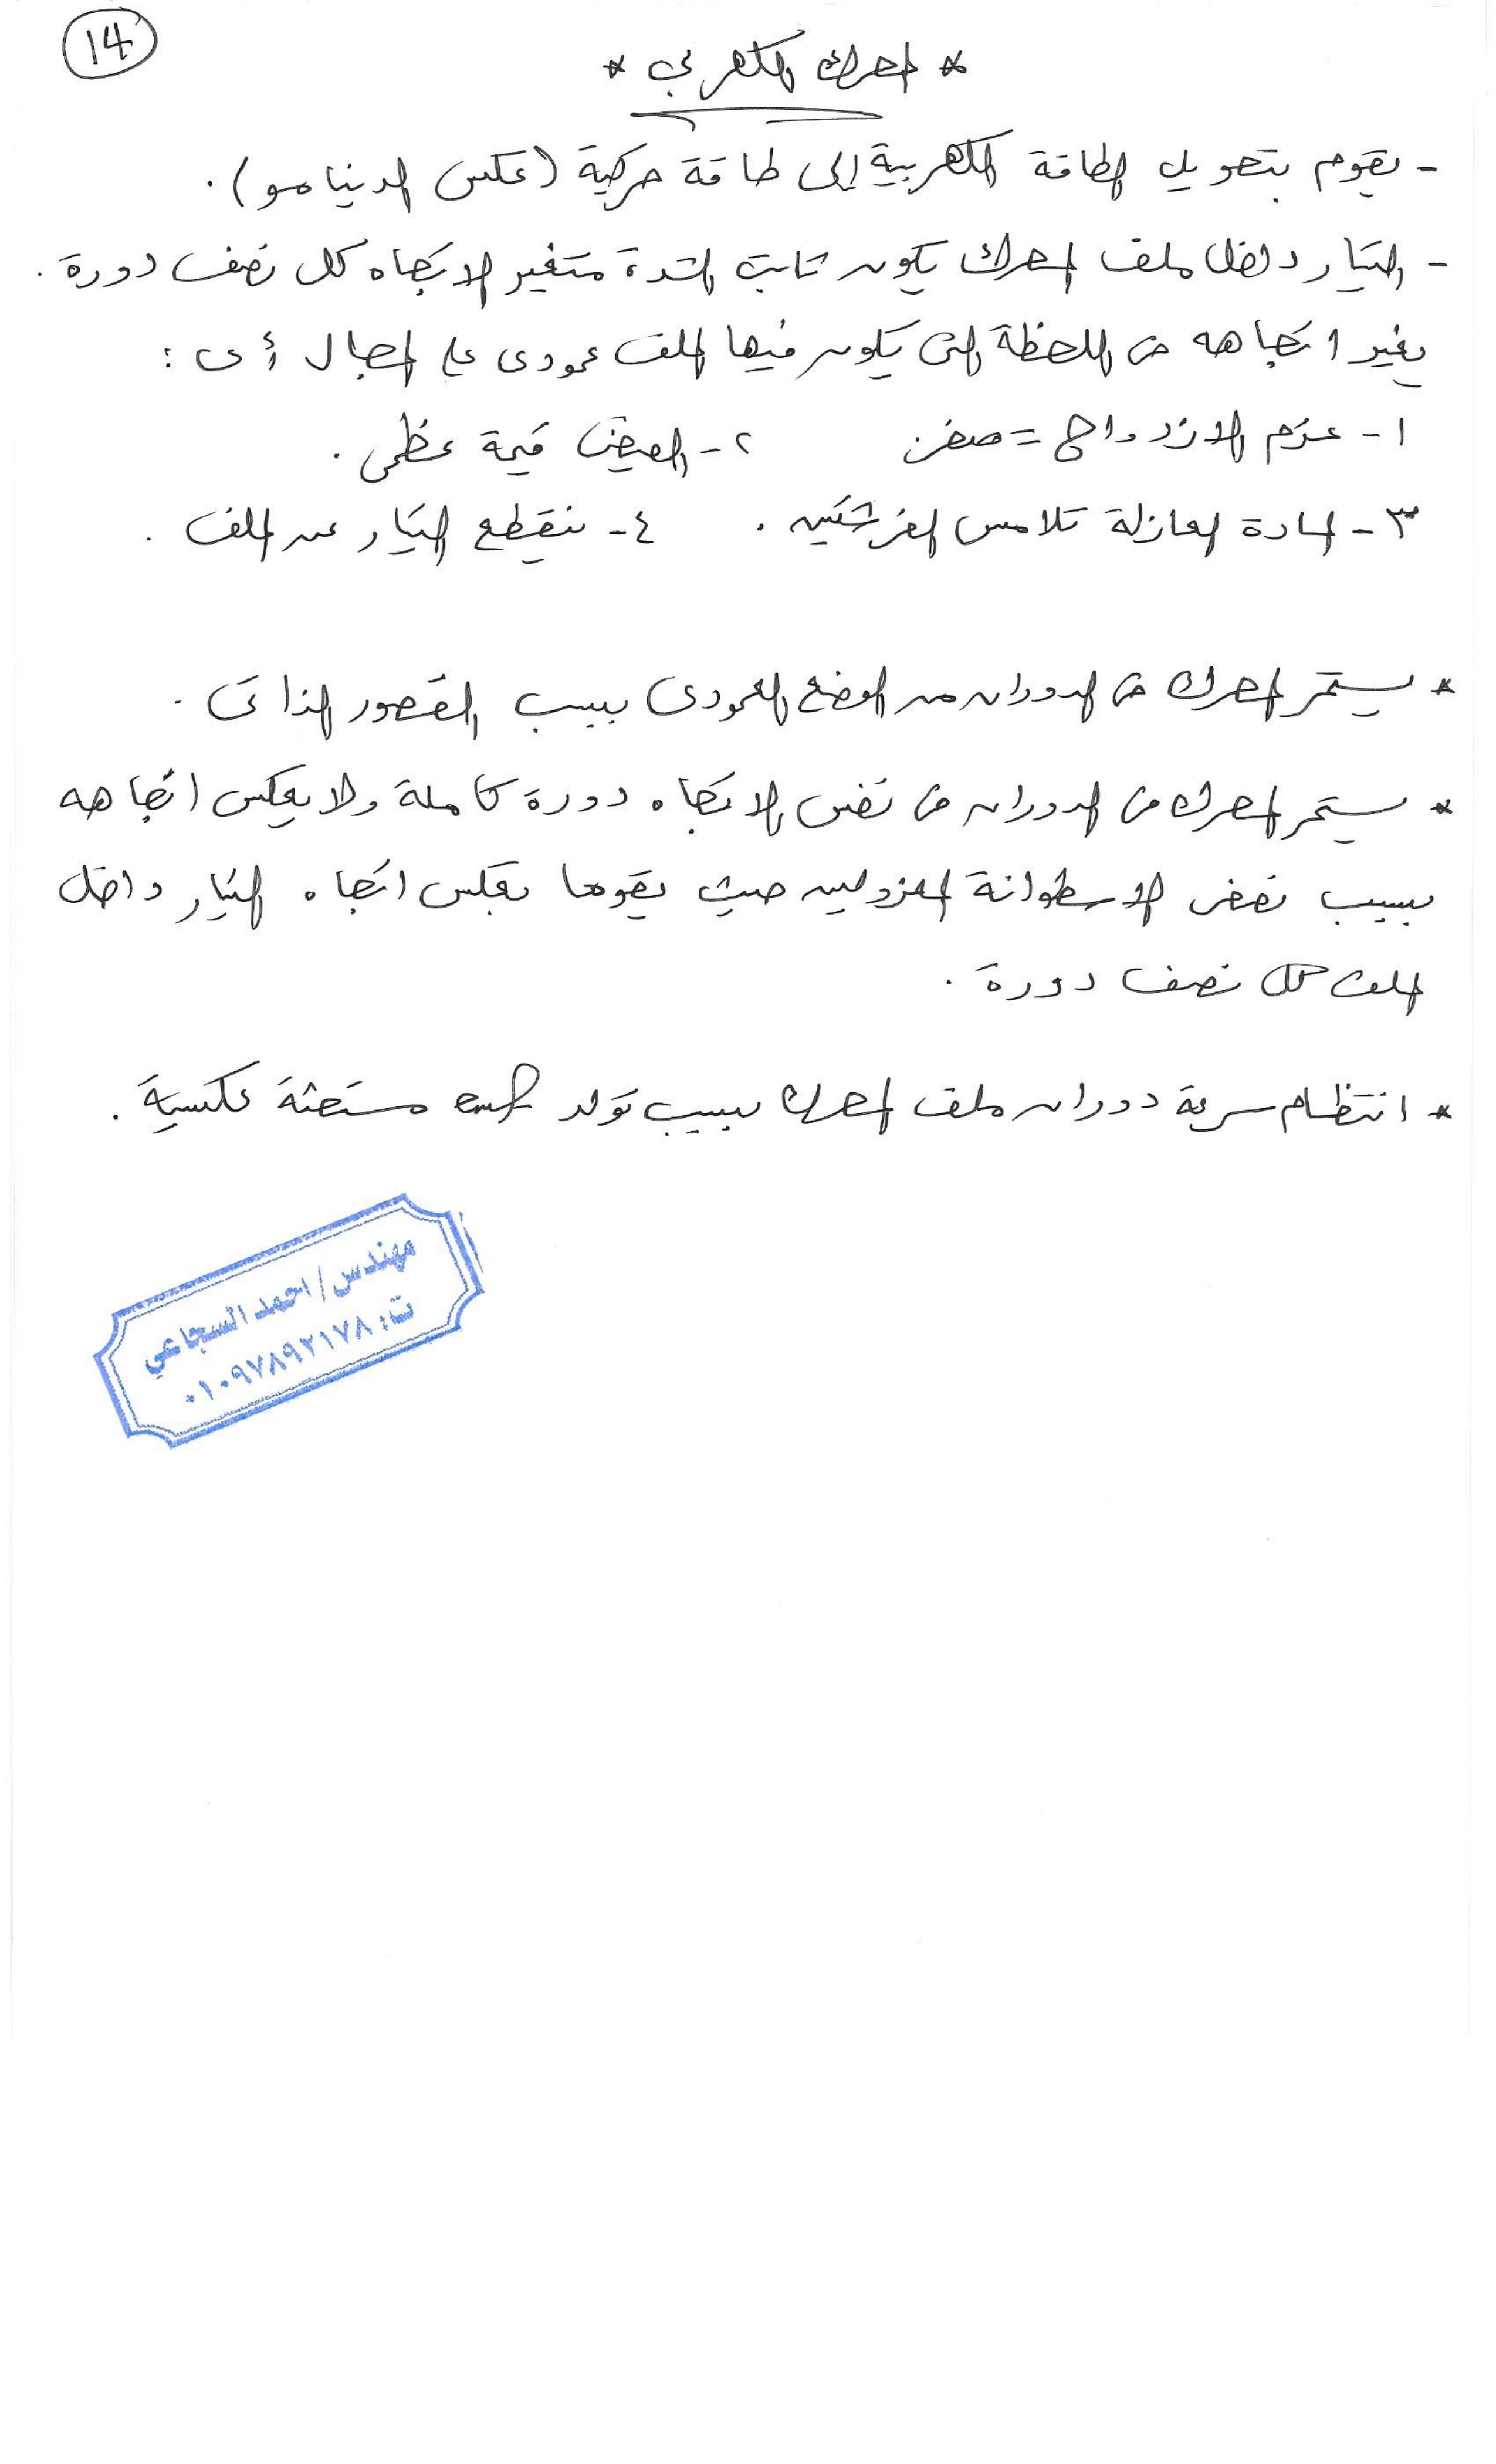 14
* المحرك الكهربى *
- يقوم بتحويل الطاقة الكهربية إلى طاقة حركية (عكس الدينامو).
- التيار داخل ملف المحرك يكون ثابت الشدة متغير الاتجاه كل نصف دورة.
يغير اتجاهه فى اللحظة التى يكون فيها الملف عمودى على المجال أى:
١- عزم الازدواج = صفر ٢- الفيض قيمة عظمى.
٣- المادة العازلة تلامس الفرشتين. ٤- ينقطع التيار عن الملف.
* يستمر المحرك فى الدوران من الوضع العمودى بسبب القصور الذاتى.
* يستمر المحرك فى الدوران فى نفس الاتجاه دورة كاملة ولا يعكس اتجاهه
بسبب نصفى الاسطوانة المعزولين حيث يقوما بعكس اتجاه التيار داخل
الملف كل نصف دورة.
* انتظام سرعة دوران ملف المحرك بسبب تولد emf مستحثة عكسية.
مهندس/احمد السجاعي
ت: ٠١٠٩٧٨٩٢١٧٨